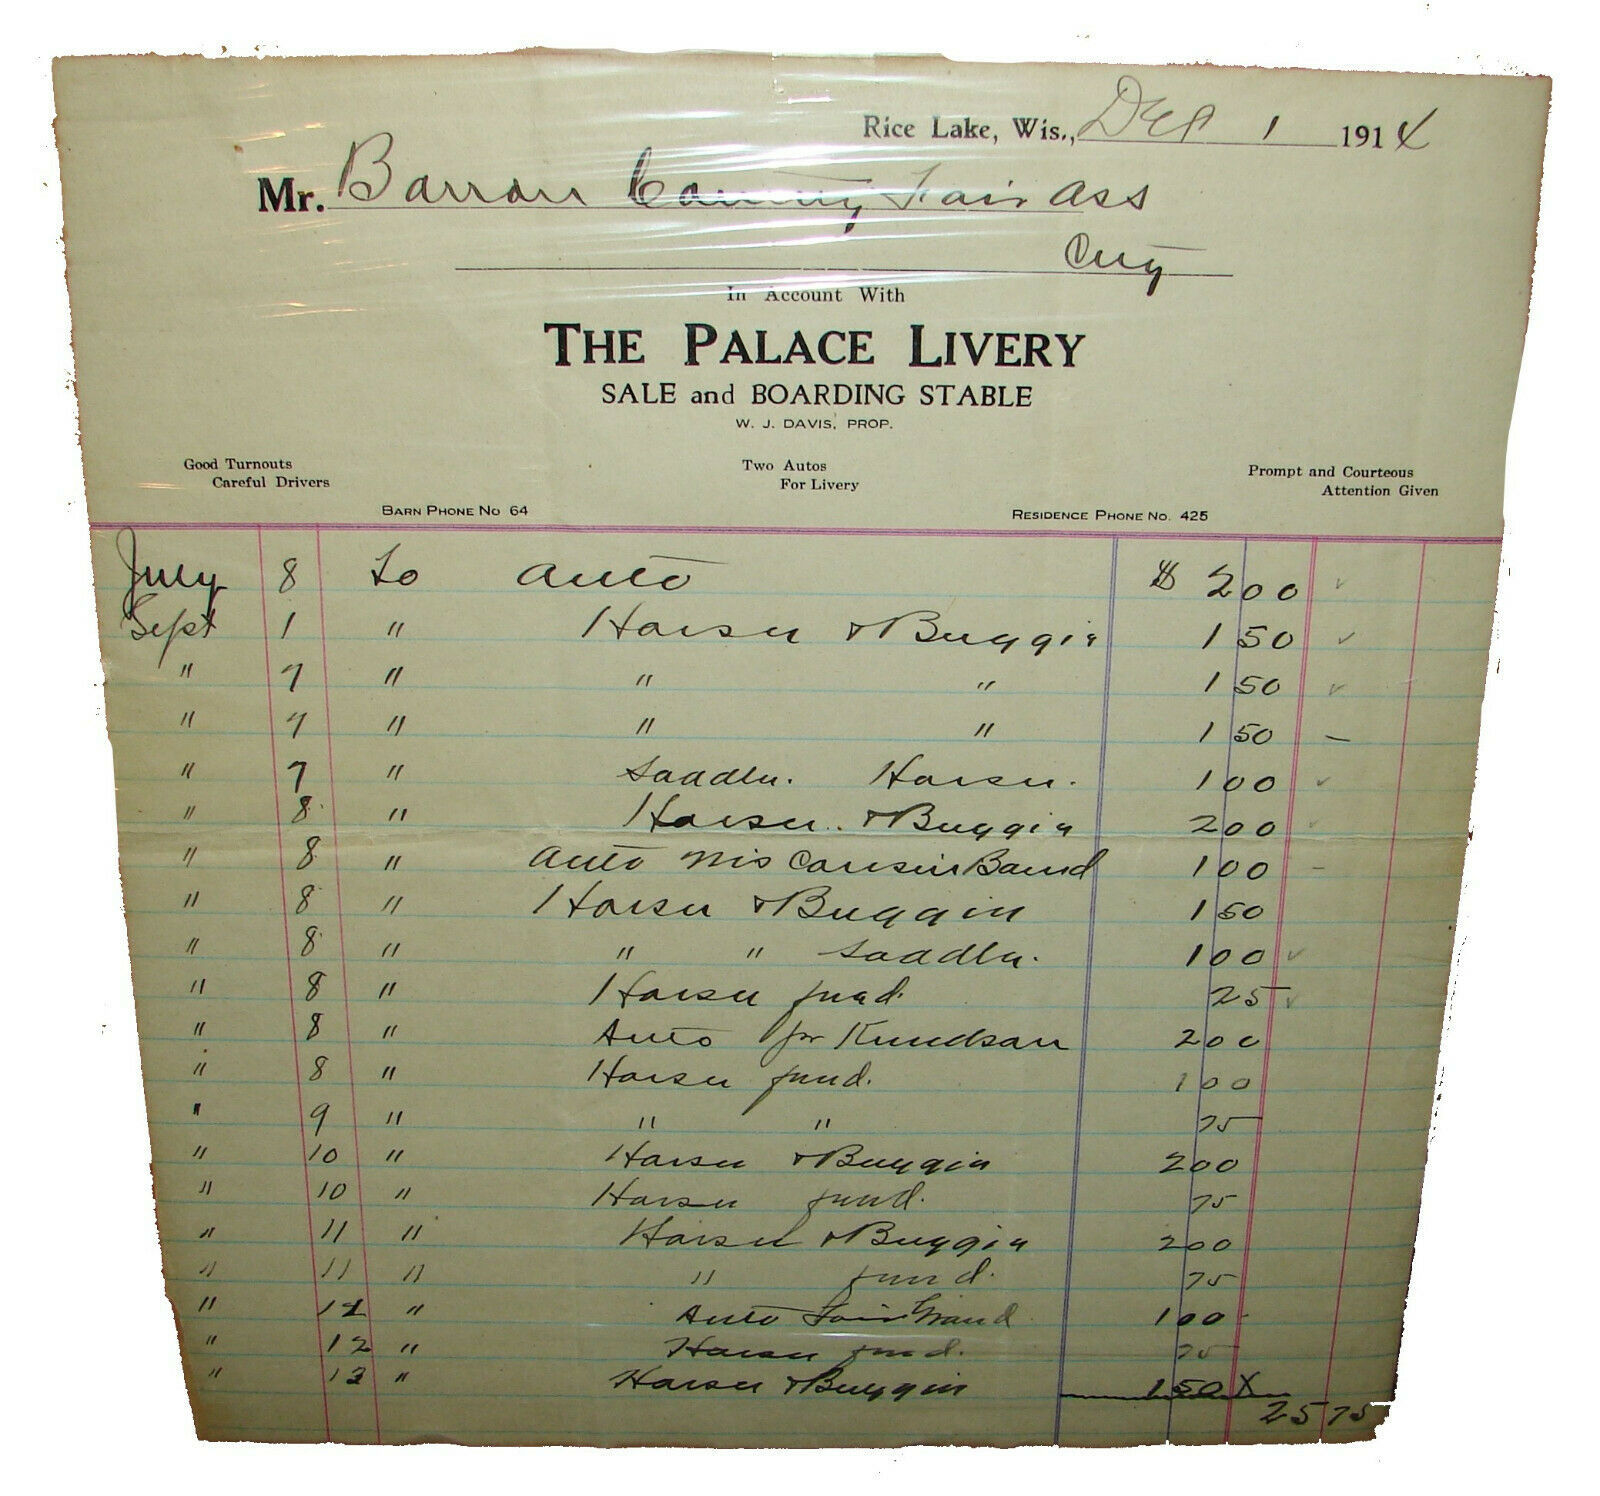 Rice Lake, Wis., Dec 1 1914
Mr. Barron County Fair Ass
City
In Account With
THE PALACE LIVERY
SALE and BOARDING STABLE
W. J. DAVIS, PROP.
Good Turnouts
Careful Drivers
Two Autos
For Livery
Prompt and Courteous
Attention Given
BARN PHONE No 64
RESIDENCE PHONE NO. 425
July 8 To Auto $ 2 00 ✓
Sept 1 " Horse & Buggie 1 50 ✓
" 7 " " " 1 50 ✓
" 7 " " " 1 50 –
" 7 " Saddle. Horse. 1 00 ✓
" 8 " Horse. & Buggie 2 00 ✓
" 8 " Auto Band 1 00 –
" 8 " Horse & Buggie 1 50
" 8 " " " Saddle. 1 00 ✓
" 8 " Horse feed. 25 ✓
" 8 " Auto for Knudson 2 00
" 8 " Horse feed. 1 00
" 9 " " " 75
" 10 " Horse & Buggie 2 00
" 10 " Horse feed. 75
" 11 " Horse & Buggie 2 00
" 11 " " feed. 75
" 12 " Auto Fair Ground 1 00 -
" 12 " Horse feed. 75
" 13 " Horse & Buggie 1 50 X
25 75